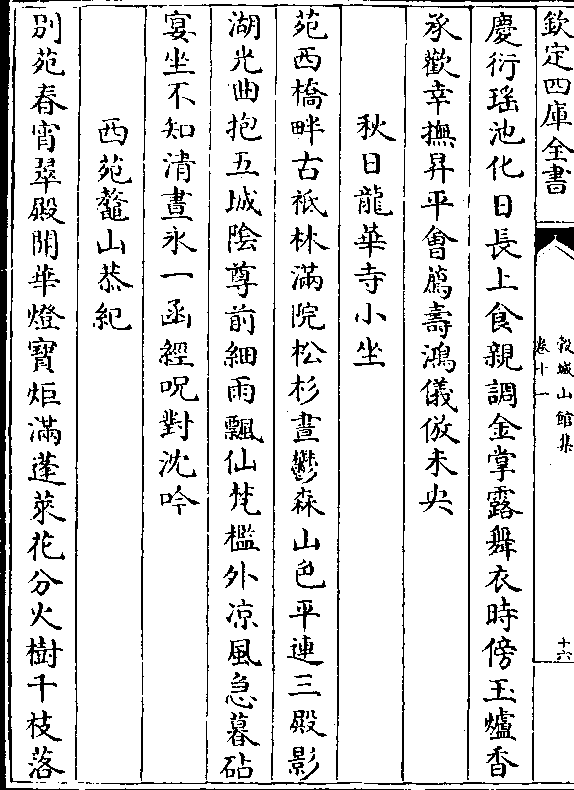 欽定四庫全書
穀城山館集
卷十一
十六
慶衍瑤池化日長上食親調金掌露舞衣時傍玉爐香
承歡幸撫昇平會薦壽鴻儀倣未央
秋日龍華寺小坐
苑西橋畔古祇林滿院松杉晝鬱森山色平連三殿影
湖光曲抱五城陰尊前細雨飄仙梵檻外凉風急暮砧
宴坐不知清晝永一函經呪對沈吟
西苑鼇山恭紀
別苑春宵翠殿開華燈寶炬滿蓬萊花分火樹千枝落